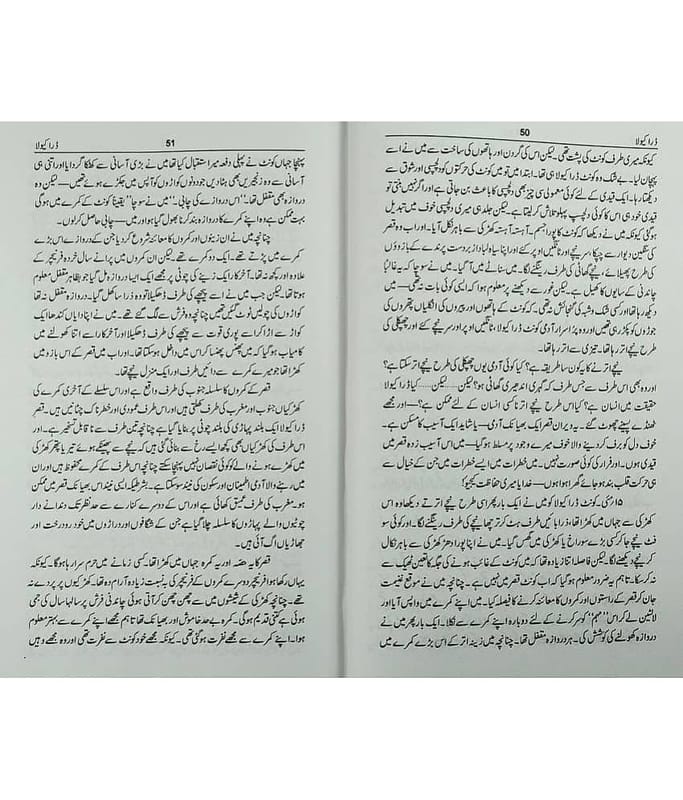 ڈراکیولا 50
کیونکہ میری طرف کونٹ کی پشت تھی۔ لیکن اس کی گردن اور ہاتھوں کی ساخت سے میں نے اسے
پہچان لیا۔ بے شک وہ کونٹ ڈراکیولا ہی تھا۔ ابتدا میں تو میں کونٹ کی حرکتوں کو دلچسپی اور شوق سے
دیکھتا رہا۔ ایک قیدی کے لئے کوئی معمولی سی چیز بھی دلچسپی کا باعث بن جاتی ہے اور اگر نہیں بنتی تو
قیدی خود ہی اس کا کوئی دلچسپ پہلو تلاش کر لیتا ہے۔ لیکن جلد ہی میری دلچسپی خوف میں تبدیل
ہو گئی کیونکہ میں نے دیکھا کہ کونٹ کا پورا جسم۔ آہستہ آہستہ کھڑکی سے باہر نکل آیا۔ اور اب وہ قصر
کی سنگین دیوار سے چپکا سر نیچے اور ٹانگیں اوپر کئے اور اپنا سیاہ لبادہ زبردست پرندے کے بازوؤں
کی طرح پھیلائے، نیچے گھاٹی کی طرف رینگنے لگا۔ میں سناٹے میں آ گیا۔ میں نے سوچا کہ یہ غالباً
چاندنی کے سایوں کا کھیل ہے۔ لیکن غور سے دیکھنے پر معلوم ہوا کہ ایسی کوئی بات نہ تھی— میں
دیکھ رہا تھا اور کسی شک و شبہ کی گنجائش نہ تھی۔ کہ کونٹ کے ہاتھوں اور پیروں کی انگلیاں پتھروں کی
جوڑوں کو پکڑ رہی تھیں اور وہ پراسرار آدمی کونٹ ڈراکیولا، ٹانگیں اوپر اور سر نیچے کئے اور چھپکلی کی
طرح نیچے اتر رہا تھا۔ تیزی سے اتر رہا تھا۔
نیچے اترنے کا یہ کون سا طریقہ ہے؟ کیا کوئی آدمی یوں چھپکلی کی طرح نیچے اتر سکتا ہے؟
اور وہ بھی اس طرف سے جس طرف کہ گہری اندھیری گھاٹی ہو؟ لیکن...... لیکن...... کیا ڈراکیولا
حقیقت میں انسان ہے؟ کیا اس طرح نیچے اترنا کسی انسان کے لئے ممکن ہے؟— اور مجھے
ٹھنڈے پسینے چھوٹ گئے۔ یہ ویران قصر ایک بھیانک آدمی— یا شاید ایک آسیب کا مسکن ہے۔
خوف دل کو برف کر دینے والا خوف میرے وجود پر مسلط ہو گیا— میں اس آسیب زدہ قصر میں
قیدی ہوں۔ اور فرار کی کوئی صورت نہیں۔ میں خطرات میں ایسے خطرات میں جن کے خیال سے
ہی حرکت قلب بند ہو جائے گھرا ہوا ہوں— خدایا میری حفاظت کیجیو!
۱۵ مئی۔ کونٹ ڈراکیولا کو میں نے ایک بار پھر اسی طرح نیچے اترتے دیکھا وہ اس
کھڑکی سے جہاں میں کھڑا تھا، ذرا بائیں طرف ہٹ کر ترچھا نیچے کی طرف رینگنے لگا۔ اور کوئی سو
فٹ نیچے جا کر کسی بڑے سوراخ یا کھڑکی میں گھس گیا۔ میں نے اپنا پورا دھڑ کھڑکی سے باہر نکال
کر نیچے دیکھنے لگا۔ لیکن فاصلہ اتنا زیادہ تھا کہ میں کونٹ کے غائب ہونے کی جگہ کا تعین ٹھیک سے
نہ کر سکا۔ تاہم یہ ضرور معلوم ہو گیا کہ اب کونٹ قصر میں نہیں ہے۔ چنانچہ میں نے موقع غنیمت
جان کر قصر کے راستوں اور کمروں کا معائنہ کرنے کا فیصلہ کیا۔ میں اپنے کمرے میں واپس آیا اور
لالٹین لے کر اس "مہم" کو سر کرنے کے لئے دوبارہ اپنے کمرے سے نکلا۔ ایک بار پھر میں نے
دروازہ کھولنے کی کوشش کی۔ ہر دروازہ مقفل تھا۔ چنانچہ میں زینہ اتر کے اس بڑے کمرے میں
51 ڈراکیولا
پہنچا جہاں کونٹ نے پہلی دفعہ میرا استقبال کیا تھا میں نے بڑی آسانی سے کھٹکا گرا دیا اور اتنی ہی
آسانی سے وہ زنجیریں بھی ہٹا دیں جو دونوں کواڑوں کو آپس میں جکڑے ہوئے تھیں— لیکن وہ
دروازہ بھی مقفل تھا۔ "اس دروازے کی چابی۔" میں نے سوچا "یقیناً کونٹ کے کمرے میں ہوگی
بہت ممکن ہے وہ اپنے کمرے کا دروازہ بند کرنا بھول گیا ہو اور میں— چابی حاصل کر لوں۔
چنانچہ میں نے ان زینوں اور کمروں کا معائنہ شروع کر دیا جن کے دروازے اس بڑے
کمرے میں پڑتے تھے۔ ایک دو کمرے تھے۔ لیکن ان کمروں میں پرانے سال خوردہ فرنیچر کے
علاوہ اور کچھ نہ تھا۔ آخر کار ایک زینے کی چوٹی پر مجھے ایک ایسا دروازہ مل گیا جو بظاہر مقفل معلوم
ہوتا تھا۔ لیکن جب میں نے اسے پیچھے کی طرف ڈھکیلا تو وہ ذرا سا کھل گیا۔ دروازہ مقفل نہ تھا
کواڑوں کی چولیں ٹوٹ گئیں تھیں چنانچہ وہ فرش سے لگ گئے تھے۔ میں نے اپنا دایاں کندھا ایک
کواڑ سے اڑا کر اسے پوری قوت سے پیچھے کی طرف ڈھکیلا اور آخر کار اسے اتنا کھولنے میں
کامیاب ہو گیا کہ میں پھنس پھنسا کر اس میں داخل ہو سکتا تھا۔ اور اب میں قصر کے اس بازو میں
کھڑا تھا جو میرے کمرے سے دائیں طرف اور ایک منزل نیچے تھا۔
قصر کے کمروں کا سلسلہ جنوب کی طرف واقع ہے اور اس سلسلے کے آخری کمرے کی
کھڑکیاں جنوب اور مغرب کی طرف کھلتی ہیں اور اس طرف عمودی اور خطرناک چٹانیں ہیں۔ قصر
ڈراکیولا ایک بلند پہاڑی کی بلند چوٹی پر بنایا گیا ہے چنانچہ تین طرف سے ناقابل تسخیر ہے۔ اور
اس طرف کی کھڑکیاں بھی کچھ ایسے رخ سے بنائی گئی ہیں کہ نیچے سے پھینکے ہوئے تیر یا پتھر کھڑکی
میں کھڑے ہونے والے کو کوئی نقصان نہیں پہنچا سکتے چنانچہ اس طرف کے کمرے محفوظ ہیں اور ان
میں رہنے والا آدمی اطمینان اور سکون کی نیند سو سکتا ہے۔ بشرطیکہ ایسی نیند اس بھیانک قصر میں ممکن
ہو۔ مغرب کی طرف عمیق گھاٹی ہے اور اس کے دوسرے کنارے سے حد نظر تک دندانے دار
چوٹیوں والے پہاڑوں کا سلسلہ چلا گیا ہے جن کے شگافوں اور دراڑوں میں خودرو درخت اور
جھاڑیاں اگ آئی ہیں۔
قصر کا یہ حصہ اور یہ کمرہ جہاں میں کھڑا تھا۔ کسی زمانے میں حرم سرا رہا ہو گا۔ کیونکہ
یہاں رکھا ہوا فرنیچر دوسرے کمروں کے فرنیچر کی بہ نسبت زیادہ آرام دہ تھا۔ کھڑکیوں پر پردے نہ
تھے۔ چنانچہ کھڑکی کے شیشوں میں سے چھن چھن کر آتی ہوئی چاندنی فرش پر سالہا سال کی جمی
ہوئی بے حد خاموش اور بھیانک تھا تاہم مجھے اپنے کمرے سے بہتر معلوم
ہوا۔ مجھے اپنے کمرے سے مجھے نفرت ہو گئی تھی۔ کیونکہ مجھے خود کونٹ سے نفرت تھی اور وہ وہیں